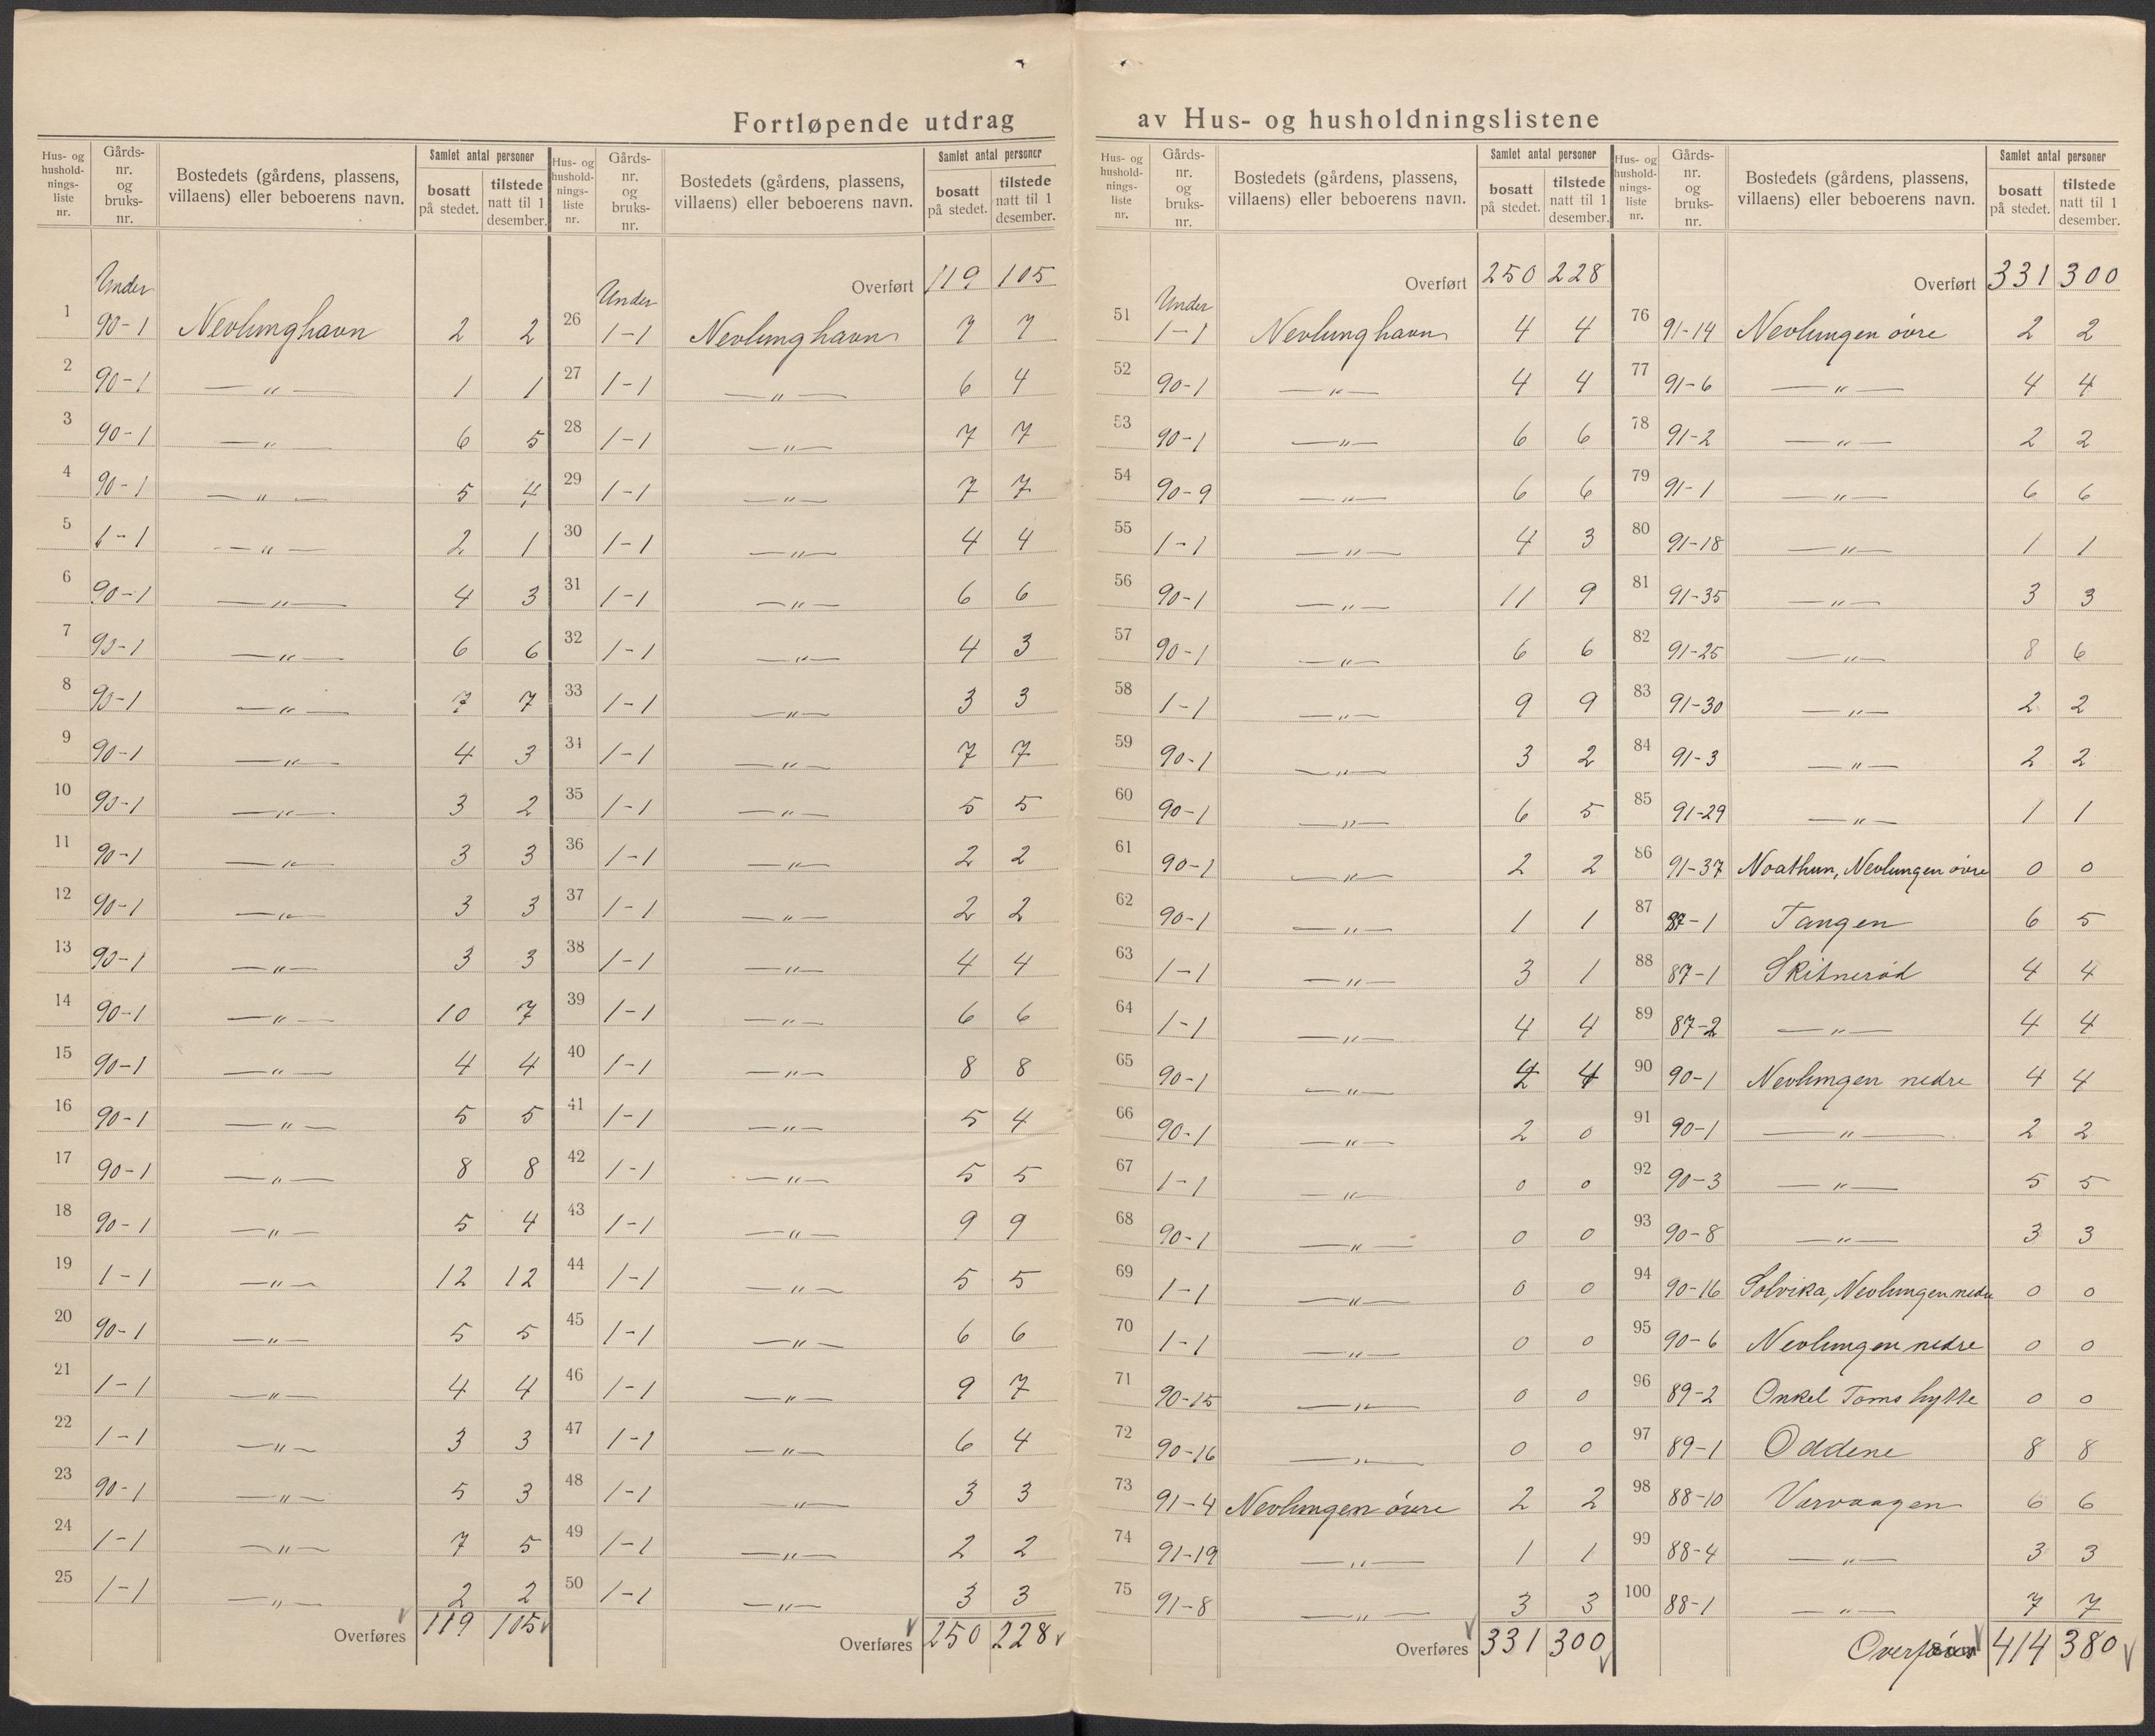 Fortløpende utdrag av Hus- og husholdningslistene
Hus- og hushold-nings-liste nr. | Gårds-nr. og bruks-nr. | Bostedets (gårdens, plassens, villaens) eller beboerens navn. | Samlet antal personer | bosatt på stedet. | tilstede natt til 1 desember.
Under
1 90-1 Nevlunghavn 2 2
2 90-1 —"— 1 1
3 90-1 —"— 6 5
4 90-1 —"— 5 4
5 1-1 —"— 2 1
6 90-1 —"— 4 3
7 90-1 —"— 6 6
8 90-1 —"— 7 7
9 90-1 —"— 4 3
10 90-1 —"— 3 2
11 90-1 —"— 3 3
12 90-1 —"— 3 3
13 90-1 —"— 3 3
14 90-1 —"— 10 7
15 90-1 —"— 4 4
16 90-1 —"— 5 5
17 90-1 —"— 8 8
18 90-1 —"— 5 4
19 1-1 —"— 12 12
20 90-1 —"— 5 5
21 1-1 —"— 4 4
22 1-1 —"— 3 3
23 90-1 —"— 5 3
24 1-1 —"— 7 5
25 1-1 —"— 2 2
Overføres 119 105
Hus- og hushold-nings-liste nr. | Gårds-nr. og bruks-nr. | Bostedets (gårdens, plassens, villaens) eller beboerens navn. | Samlet antal personer | bosatt på stedet. | tilstede natt til 1 desember.
Overført 119 105
Under
26 1-1 Nevlunghavn 7 7
27 1-1 —"— 6 4
28 1-1 —"— 7 7
29 1-1 —"— 7 7
30 1-1 —"— 4 4
31 1-1 —"— 6 6
32 1-1 —"— 4 3
33 1-1 —"— 3 3
34 1-1 —"— 7 7
35 1-1 —"— 5 5
36 1-1 —"— 2 2
37 1-1 —"— 2 2
38 1-1 —"— 4 4
39 1-1 —"— 6 6
40 1-1 —"— 8 8
41 1-1 —"— 5 4
42 1-1 —"— 5 5
43 1-1 —"— 9 9
44 1-1 —"— 5 5
45 1-1 —"— 6 6
46 1-1 —"— 9 7
47 1-1 —"— 6 4
48 1-1 —"— 3 3
49 1-1 —"— 2 2
50 1-1 —"— 3 3
Overføres 250 228
Hus- og hushold-nings-liste nr. | Gårds-nr. og bruks-nr. | Bostedets (gårdens, plassens, villaens) eller beboerens navn. | Samlet antal personer | bosatt på stedet. | tilstede natt til 1 desember.
Overført 250 228
Under
51 1-1 Nevlunghavn 4 4
52 90-1 —"— 4 4
53 90-1 —"— 6 6
54 90-9 —"— 6 6
55 1-1 —"— 4 3
56 90-1 —"— 11 9
57 90-1 —"— 6 6
58 1-1 —"— 9 9
59 90-1 —"— 3 2
60 90-1 —"— 6 5
61 90-1 —"— 2 2
62 90-1 —"— 1 1
63 1-1 —"— 3 1
64 1-1 —"— 4 4
65 90-1 —"— 4 4
66 90-1 —"— 2 0
67 1-1 —"— 0 0
68 90-1 —"— 0 0
69 1-1 —"— 0 0
70 1-1 —"— 0 0
71 90-15 —"— 0 0
72 90-16 —"— 0 0
73 91-4 Nevlungen øvre 2 2
74 91-19 —"— 1 1
75 91-8 —"— 3 3
Overføres 331 300
Hus- og hushold-nings-liste nr. | Gårds-nr. og bruks-nr. | Bostedets (gårdens, plassens, villaens) eller beboerens navn. | Samlet antal personer | bosatt på stedet. | tilstede natt til 1 desember.
Overført 331 300
76 91-14 Nevlungen øvre 2 2
77 91-6 —"— 4 4
78 91-2 —"— 2 2
79 91-1 —"— 6 6
80 91-18 —"— 1 1
81 91-35 —"— 3 3
82 91-25 —"— 8 6
83 91-30 —"— 2 2
84 91-3 —"— 2 2
85 91-29 —"— 1 1
86 91-37 Noathun, Nevlungen øvre 0 0
87 87-1 Tangen 6 5
88 87-1 Skitnerød 4 4
89 87-2 —"— 4 4
90 90-1 Nevlungen nedre 4 4
91 90-1 —"— 2 2
92 90-3 —"— 5 5
93 90-8 —"— 3 3
94 90-16 Solvika, Nevlungen nedre 0 0
95 90-6 Nevlungen nedre 0 0
96 89-2 Onkel Toms hytte 0 0
97 89-1 Oddene 8 8
98 88-10 Varvaagen 6 6
99 88-4 —"— 3 3
100 88-1 —"— 7 7
414 380